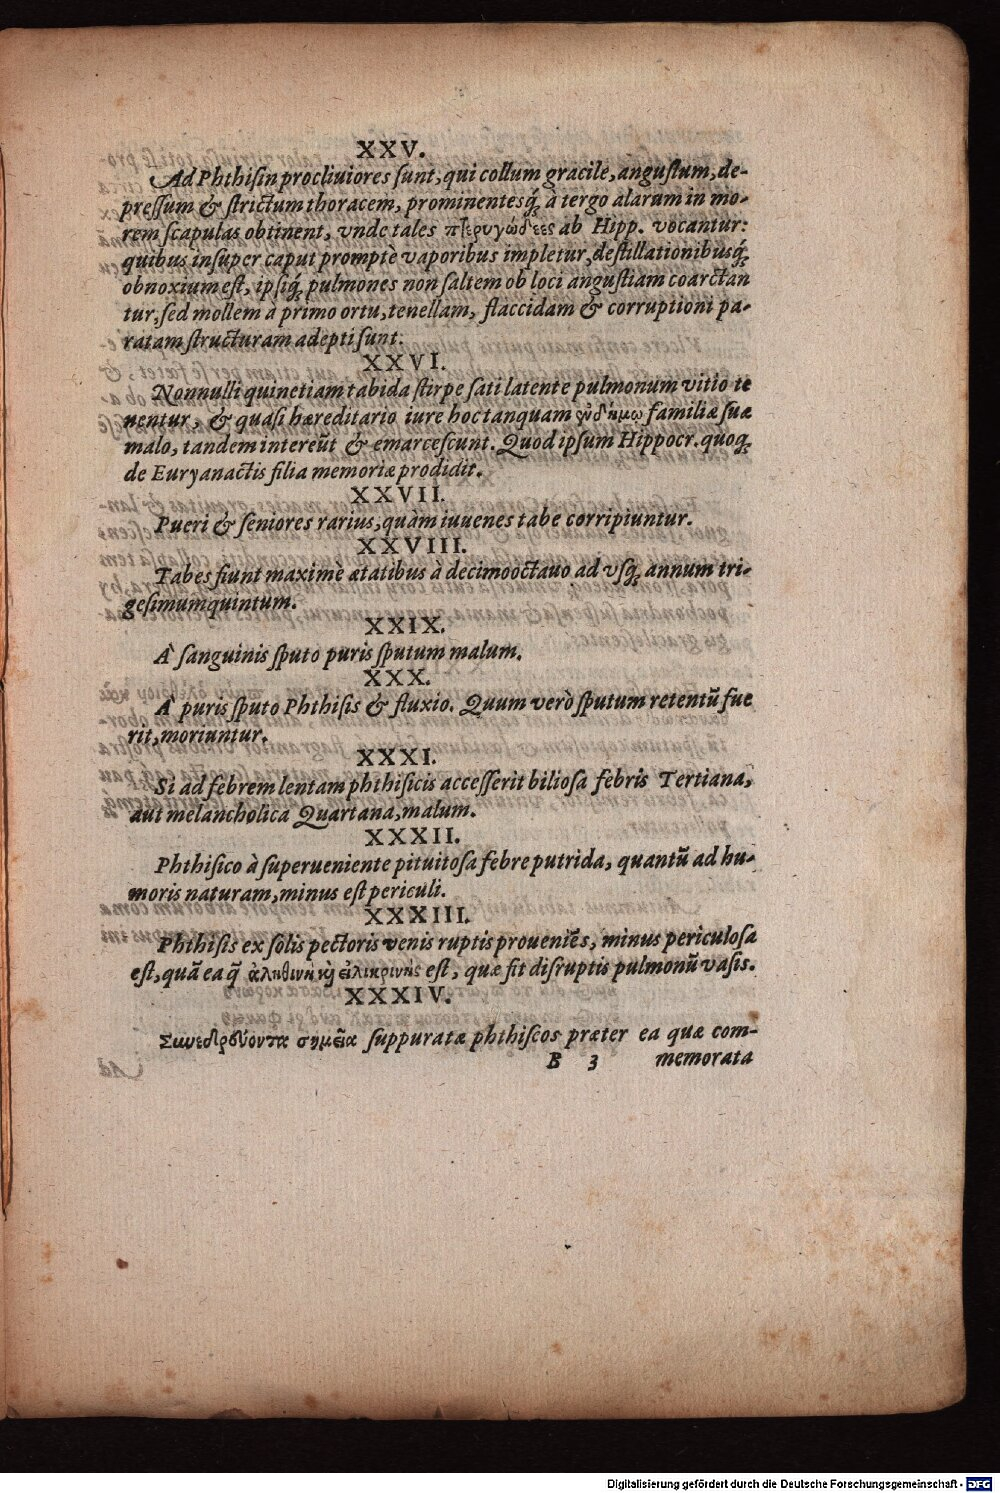 XXV.
Ad Phthiſin procliuiores ſunt, qui collum gracile, anguſtum, de-
preſſum & ſtrictum thoracem, prominentesq́; à tergo alarum in mo-
rem ſcapulas obtinent, vnde tales πτερυγώδεες ab Hipp. vocantur:
quibus inſuper caput promptè vaporibus impletur, deſtillationibusq́;
obnoxium eſt, ipſiq́; pulmones non ſaltem ob loci anguſtiam coarctan
tur, ſed mollem à primo ortu, tenellam, flaccidam & corruptioni pa-
ratam ſtructuram adepti ſunt.
XXVI.
Nonnulli quinetiam tabida ſtirpe ſati latente pulmonum vitio te
nentur, & quaſi hæreditario iure hoc tanquam familiæ ſuæ
malo, tandem intereũt & emarceſcunt. Quod ipſum Hippocr. quoq;
de Euryanactis filia memoriæ prodidit.
XXVII.
Pueri & ſeniores rarius, quàm iuuenes tabe corripiuntur.
XXVIII.
Tabes fiunt maximè ætatibus à decimooctauo ad vſq́; annum tri-
geſimumquintum.
XXIX.
À ſanguinis ſputo puris ſputum malum.
XXX.
À puris ſputo Phthiſis & fluxio. Quum verò ſputum retentũ fue
rit, moriuntur.
XXXI.
Si ad febrem lentam phthiſicis acceſſerit bilioſa febris Tertiana,
aut melancholica Quartana, malum.
XXXII.
Phthiſico à ſuperueniente pituitoſa febre putrida, quantũ ad hu-
moris naturam, minus eſt periculi.
XXXIII.
Phthiſis ex ſolis pectoris venis ruptis proueniẽs, minus periculoſa
eſt, quã ea q̃ ἀληθινὴ καὶ εἰλικρινής eſt, quæ fit diſruptis pulmonũ vaſis.
XXXIV.
Συνεδρεύοντα σημεῖα ſuppuratæ phthiſeos præter ea quæ com-
B 3 memorata
Digitalisierung gefördert durch die Deutsche Forschungsgemeinschaft - DFG